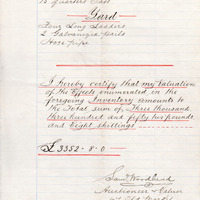 15 Quarters Oats
Yard
Four Long Ladders
2 Galvanized Pails
Hose pipe
I hereby certify that my Valuation
of the Effects enumerated in the
foregoing Inventory amounts to
the Total sum of, Three thousand
three hundred and fifty two pounds
and eight shillings
£ 3352 - 8. 0
Saml Woodland
Auctioneer & Valuer